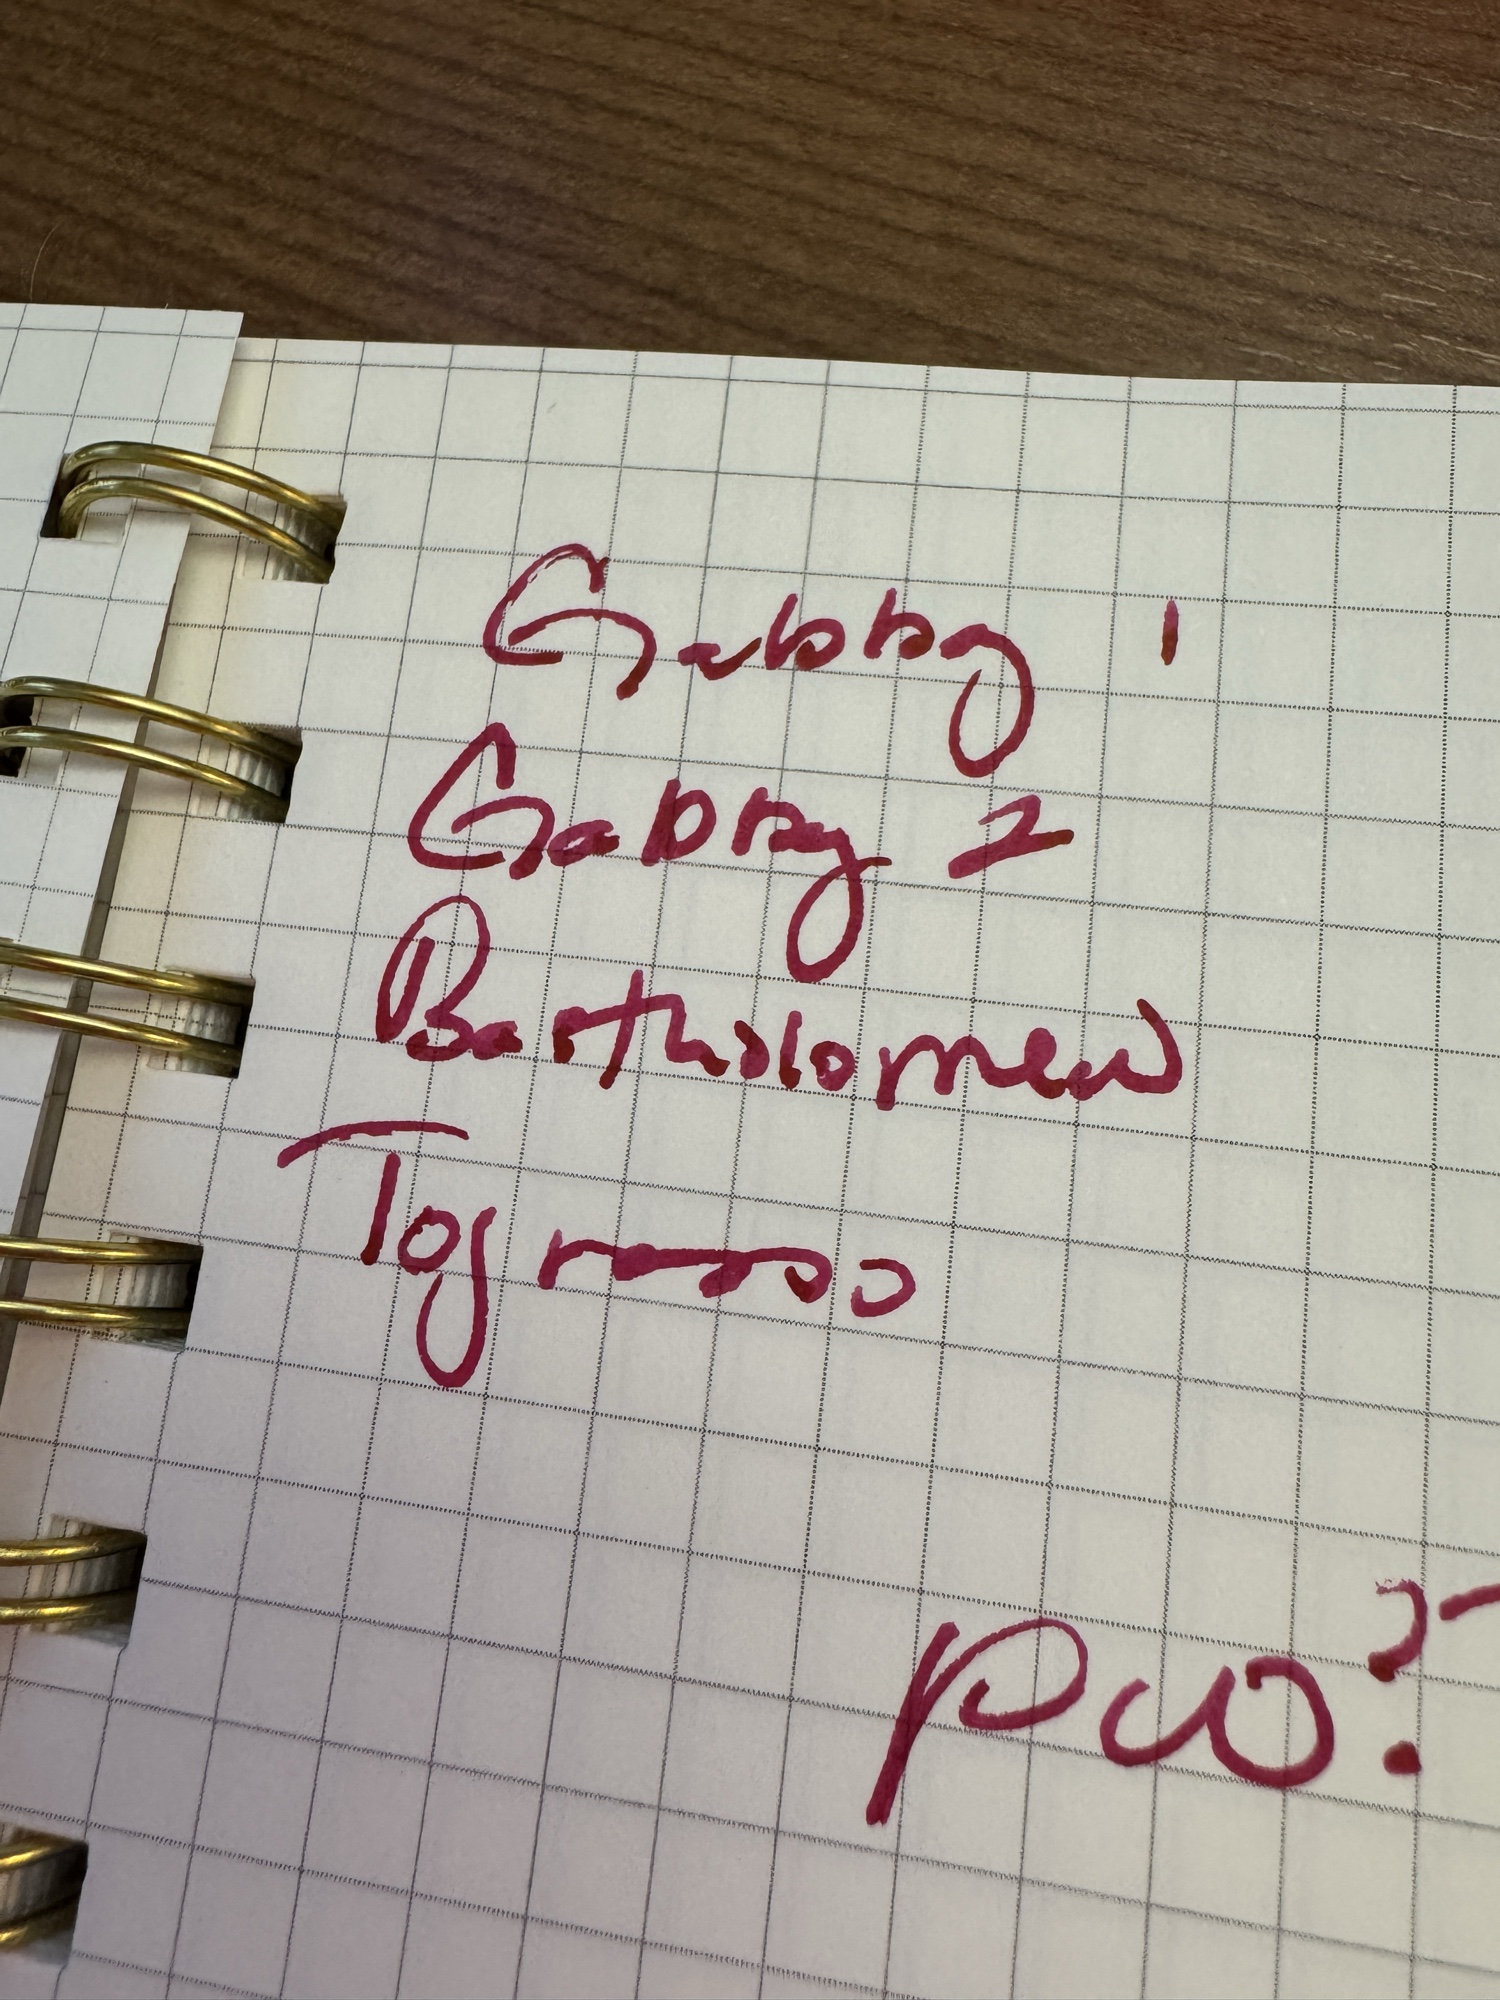 Gabby 1
Gabby 2
Bartholomew
Tograsso
pw?